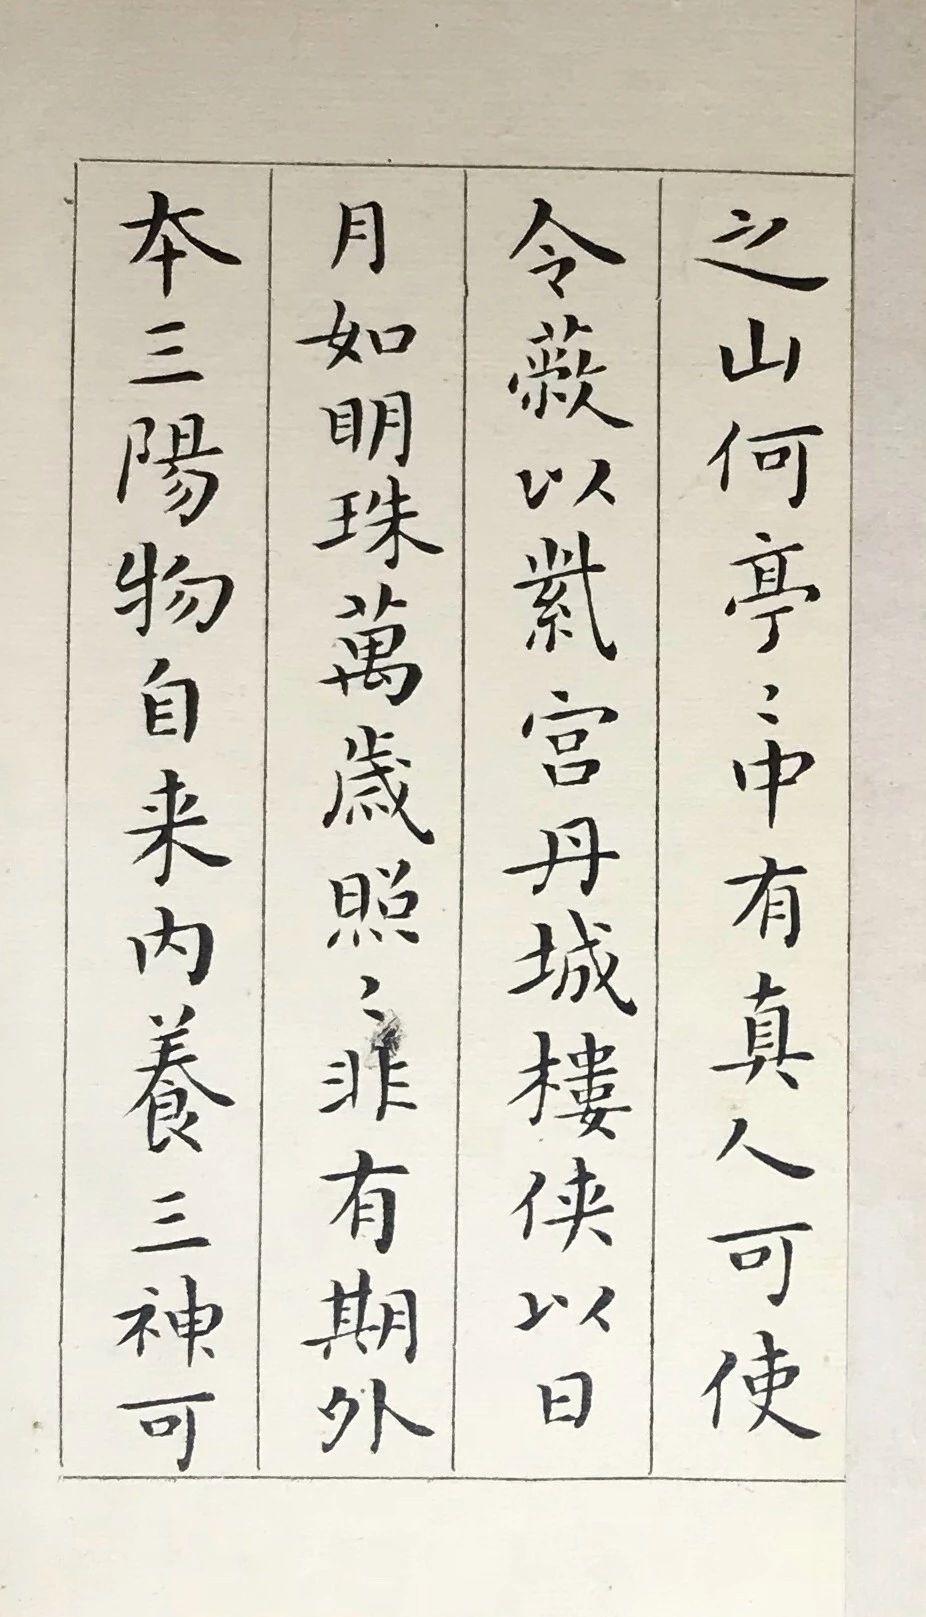 之山何亭〻中有真人可使
令蔽以紫宫丹城樓侠以日
月如眀珠萬歲照〻非有期外
本三陽物自来内養三神可